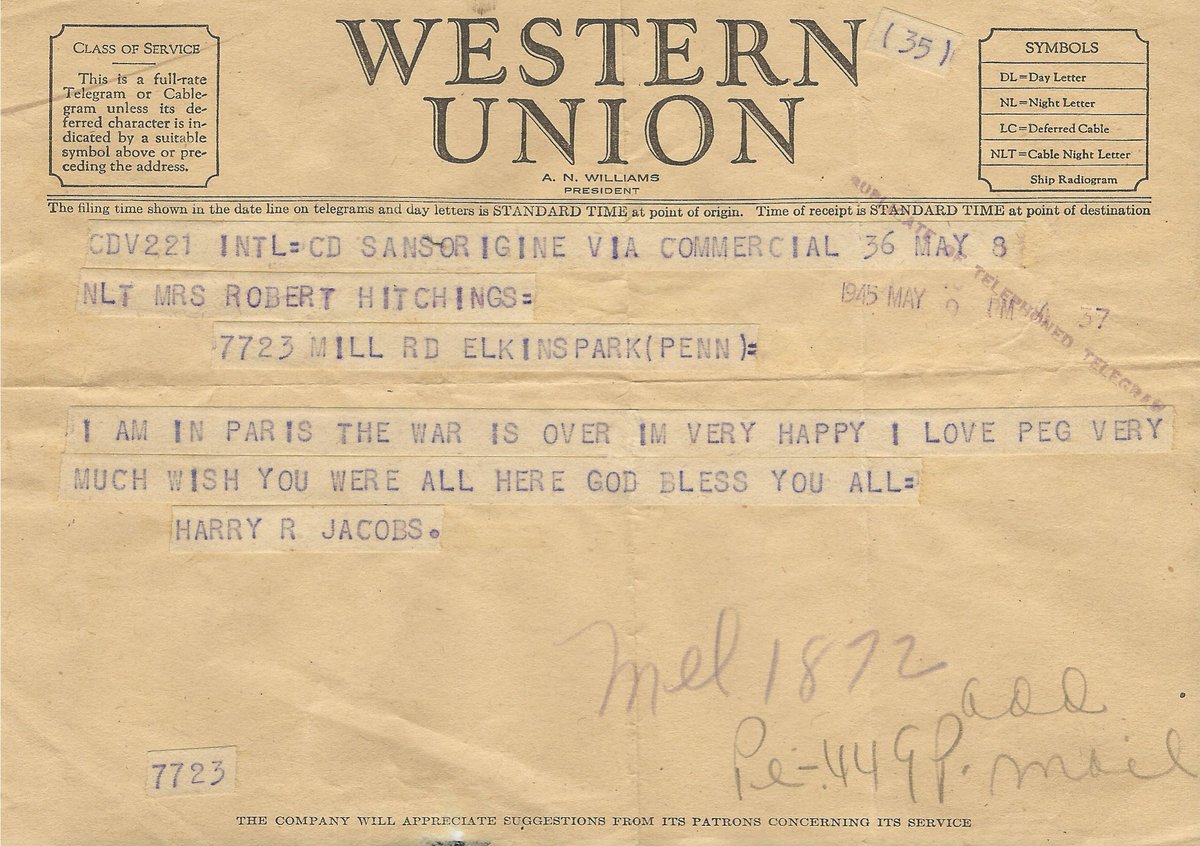 CLASS OF SERVICE
This is a full-rate
Telegram or Cable-
gram unless its de-
ferred character is in-
dicated by a suitable
symbol above or pre-
ceding the address.
WESTERN
UNION
(35)
A. N. WILLIAMS
PRESIDENT
SYMBOLS
DL=Day Letter
NL=Night Letter
LC=Deferred Cable
NLT=Cable Night Letter
Ship Radiogram
The filing time shown in the date line on telegrams and day letters is STANDARD TIME at point of origin. Time of receipt is STANDARD TIME at point of destination
DUPLICATE OF TELEPHONED TELEGRAM
CDV221 INTL=CD SANSORIGINE VIA COMMERCIAL 36 MAY 8
NLT MRS ROBERT HITCHINGS=
1945 MAY PM 37
7723 MILL RD ELKINSPARK(PENN)=
I AM IN PARIS THE WAR IS OVER IM VERY HAPPY I LOVE PEG VERY
MUCH WISH YOU WERE ALL HERE GOD BLESS YOU ALL=
HARRY R JACOBS.
Mel 1872
add
mail
7723
THE COMPANY WILL APPRECIATE SUGGESTIONS FROM ITS PATRONS CONCERNING ITS SERVICE